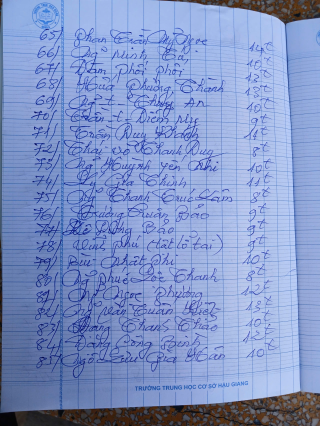 65/ Phan Trần Mỹ Ngọc 14t
66/ Ng̃ Minh Tú 10t
67/ Đàm Phối Phối 12t
68/ Hứa Phường Thành 13t
69/ Ng̃ T- Thúy An 10t
70/ Trần-t- Diễm My 9t
71/ Trần Duy Khánh 11t
72/ Thái Võ Thanh Duy 8t
73/ Ng̃ Huỳnh Yến Nhi 10t
74/ Gia Thịnh 11t
75/ Ng̃ Thanh Trúc Lâm 8t
76/ Trương Tuấn Bảo 9t
77/ Bảo 9t
78/ Vĩnh Phú (tất lô tai) 9t
79/ Lưu Nhật Phi 10t
80/ Ng̃ Phúc Lộc Thanh 8t
81/ Ng̃ Ngọc Phượng 12t
82/ Ng̃ Văn Tuấn Kiệt 13t
83/ Hoàng Thanh Thảo 10t
84/ Đặng Công Bình 12t
85/ Ngôc Lưu Gia Hân 10t
TRƯỜNG TRUNG HỌC CƠ SỞ HẬU GIANG